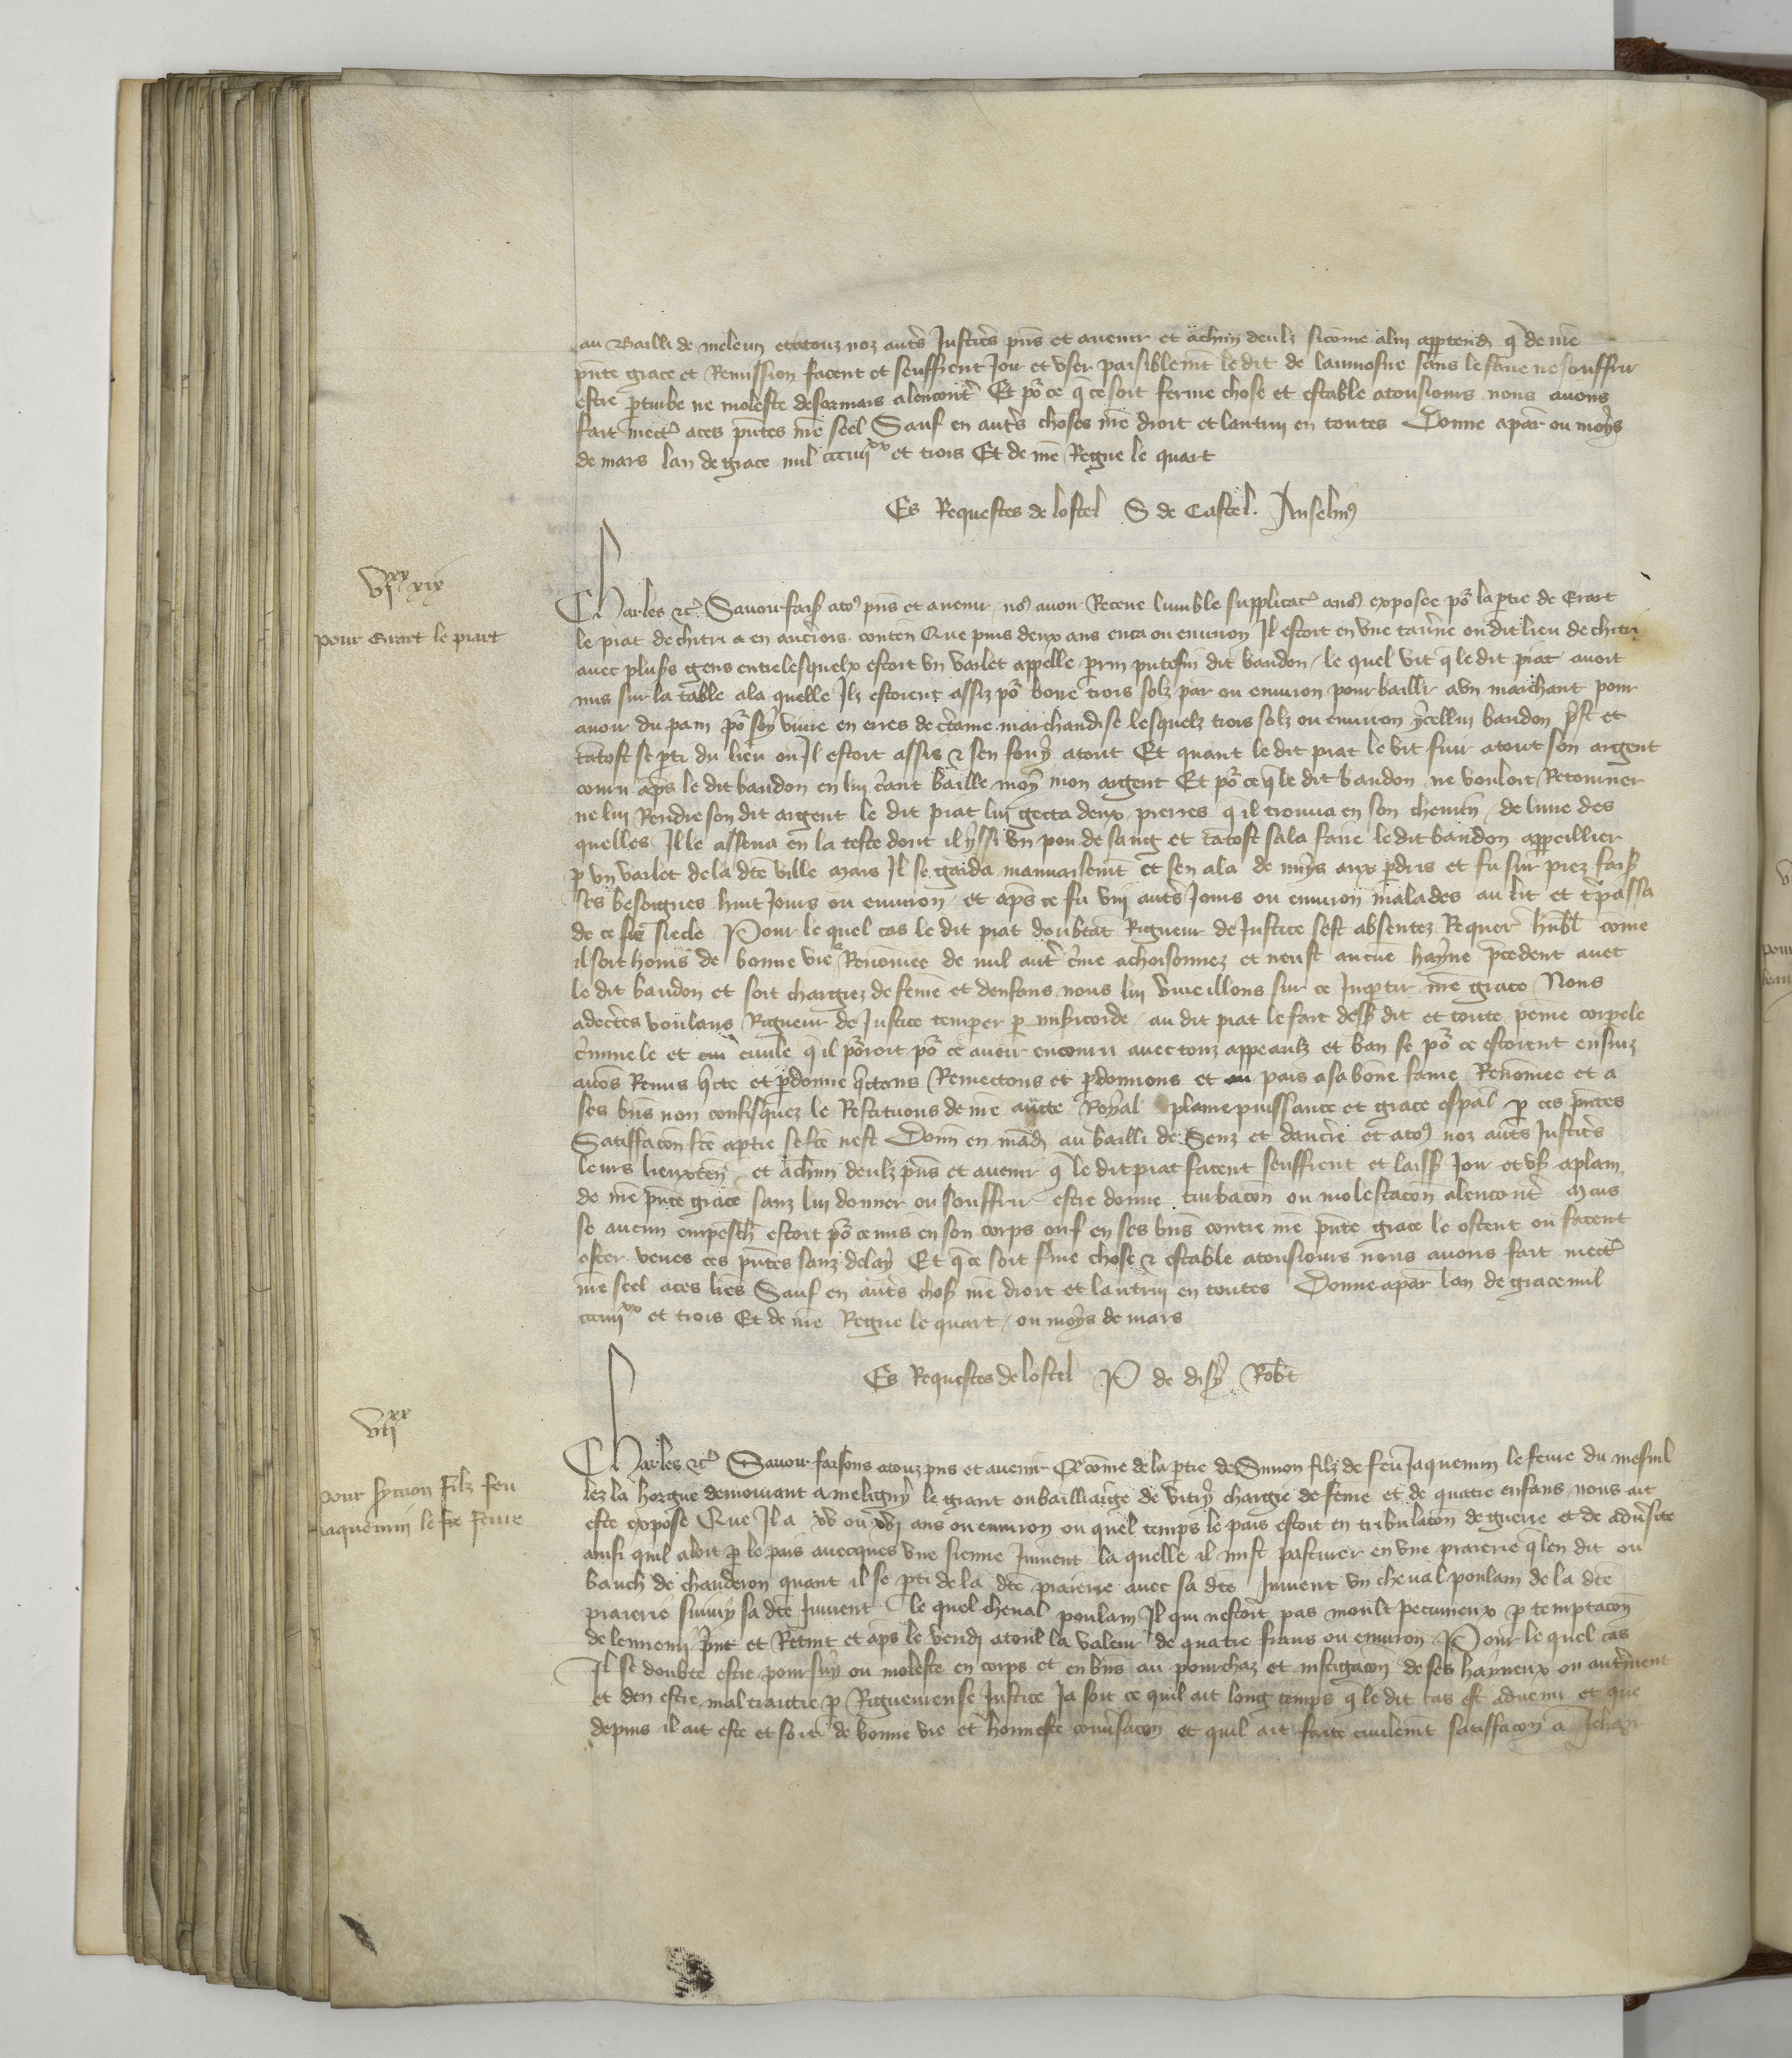 au Bailli de meleun et atouz noz autrs Justicrs pns et avenir et achun deulz sicome alui apptend q de nre
pnte grace et Remission facent et seuffrent Joir et user paisiblemt le dit de laumosne sans le faire ne souffrir
estre ptube ne moleste desormais alencontr Et por ce q ce soit ferme chose et estable atousiours nous avons
fait mectr aces pntes nre seel Sauf en autrs choses nre droit et lautruy en toutes Donne apar ou moys
de mars lan de grace mil ccciiijxx et trois Et de nre Regne le quart
Es Requestes de lostel S de Castel. Anselmus
vjxx xix
pour Erart le piart
Charles etc Savoir fais atos pns et avenir nos avoir Receue lumble supplicac anos exposee por la ptie de Erart
le piat de chitri a en aucrois conten Que puis deux ans enca ou environ Il estoit en une taverne ou dit lieu de chitri
avec plusrs gens entre lesquelx estoit un varlet appelle prin putefin dit baudon le quel vit q le dit piat avoit
mis sur la table ala quelle Ilz estoient assiz por boire trois solz par ou environ pour baillr aun marchant pour
avoir du pain por soy vivre en erres de crtaine marchandise lesquelz trois solz ou environ ycellui baudon prist et
tatost se pti du lieu ou Il estoit assis et sen fouy atout Et quant le dit piat le vit fuir atout son argent
couru aps le dit baudon en lui criant baille moy mon argent Et por ce q le dit baudon ne vouloit Retourner
ne lui Rendre son dit argent le dit piat lui gecta deux pierres q il trouva en son chemin de lune des
quelles Il le assena en la teste dont il yssi un pou de sang et tatost sala faire le dit baudon appeillier
p un varlet de la dte ville mais Il se garda mauvaisemt et sen ala de nuys aux pdris et fu sur piez fais
ses besoignes huit Jours ou environ et aps ce fu viij autrs Jours ou environ malades au lit et trpassa
de ce sie siecle Pour le quel cas le dit piat doubtat Rigueur de Justice sest absentez Requer hubl come
il soit homs de bonne vie Renomee de nul autr crime achoisonnez et neust aucune hayne pcedent avec
le dit baudon et soit chargiez de feme et denfans nous lui vueillons sur ce Inptir nre grace Nous
adecrtes voulans Rigueur de Justice temperer p misicorde au dit piat le fait dess dit et toute peine corpele
criminele et civile q il porroit por ce avoir encouru avec touz appeaulz et ban se por ce estoient ensuiz
avos Remis qcte et pdonne qctons Remectons et pdonnons et au pais asa bone fame Renomee et a
ses bns non confisquez le Restituons de nre aucte Royal plaine puissance et grace espal p ces pntes
Satiffacon fce aptie se fce nest Donn en mad au bailli de Senz et daucrre et atos noz autrs Justicrs
leurs lieuxten et achun deulz pns et avenir q le dit piat facent seuffrent et laiss Joir et us aplain
de nre pnte grace sanz lui donner ou souffrir estre donne turbacon ou molestacon alencontr Mais
se aucun empeschr estoit por ce mis en son corps ou en ses bns contre nre pnte grace le ostent ou facent
oster veues ces pntes sanz delay Et q ce soit fme chose et estable atousiours nous avons fait mectr
nre seel aces lres Sauf en autrs chos nre droit et lautruy en toutes Donne apar lan de grace mil
ccciiijxx et trois Et de nre Regne le quart ou moys de mars
Es Requestes de lostel P de disy Robt
vijxx
pour symon filz feu
Jaquemin le fevre
Charles etc Savoir faisons atouz pns et avenir Q come de la ptie de Simon filz de feu Jaquemin le fevre du mesnil
lez la horgne demourant a meligny le grant ou bailliaige de vitry chargie de feme et de quatre enfans nous ait
este expose Que Il a xv ou xvj ans ou environ ou quel temps le pais estoit en tribulacon de guerre et de adversite
ainsi quil aloit p le pais avecques une sienne Jument la quelle il mist pasturer en une praierie q len dit ou
bauch de chauderon quant il se pti de la dte praierie avec sa dte Jument un cheval poulain de la dte
praierie suivy sa dte Jument le quel cheval poulain Il qui nestoit pas moult pecunieux p temptacon
de lennemi print et Retint et aps le vendi atout la valeur de quatre frans ou environ Pour le quel cas
Il se doubte estre poursuy ou moleste en corps et en bns au pourchaz et instigacon de ses hayneux ou autrment
et den estre mal traictie p Rigueureuse Justice Ja soit ce quil ait long temps q le dit cas est advenu et que
depuis il ait este et soit de bonne vie et honneste conversacon et quil ait faite civilemt satiffacon a Jehan